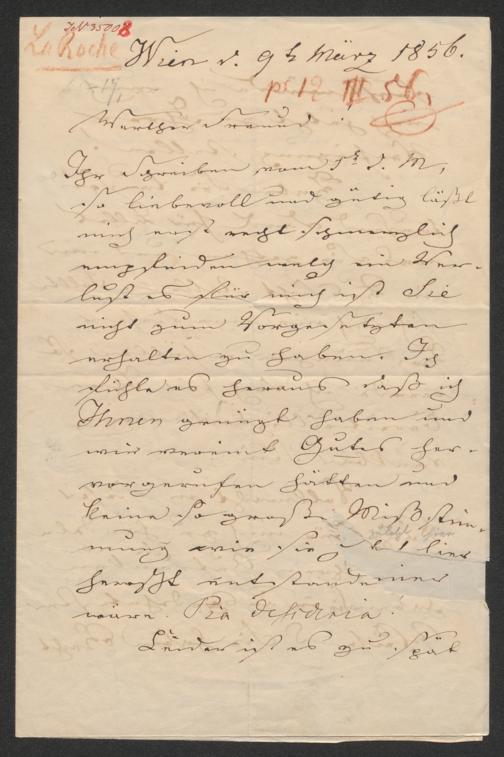 IN 35008
La Roche
Wien d. 9t März 1856.
pr 12/III 56.
Werther Freund!
Ihr Schreiben vom 5t d. M,
so liebevoll und gütig läßt
mich erst recht schmerzlich
empfinden welch ein Ver-
lust es für mich ist Sie
nicht zum Vorgesetzten
erhalten zu haben. Ich
fühle es heraus daß ich
Ihnen genügt haben und
wir vereint Gutes her-
vorgerufen hätten und
keine so große Mißstim-
mung wie sie hier
herrscht entstanden
wäre. Pia desideria
Leider ist es zu spät